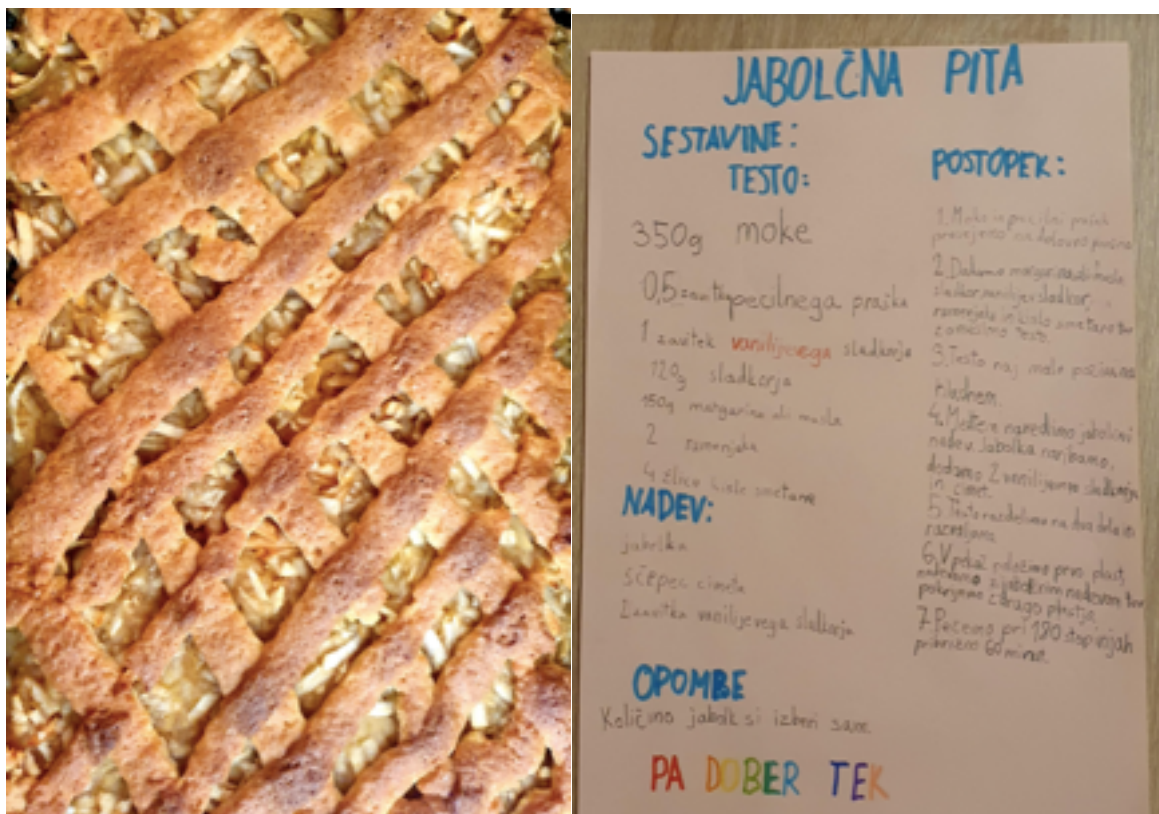 JABOLČNA PITA
SESTAVINE:
TESTO:
350g moke
0,5 zavitka pecilnega praška
1 zavitek vanilijevega sladkorja
120g sladkorja
150g margarine ali masla
2 rumenjaka
4 žlice kisle smetane
NADEV:
jabolka
ščepec cimeta
2 zavitka vanilijevega sladkorja
OPOMBE
Količino jabolk si izberi sam.
PA DOBER TEK
POSTOPEK:
1. Moko in pecilni prašek
presejemo na delovno površino
2. Dodamo margarino ali maslo
sladkor, vanilijev sladkor,
rumenjaka in kislo smetano ter
zamesimo testo.
3. Testo naj malo počiva na
hladnem.
4. Medtem naredimo jabolčni
nadev. Jabolka naribamo,
dodamo 2 vanilijeva sladkorja
in cimet.
5. Testo razdelimo na dva dela in
razvaljamo
6. V pekač položimo prvo plast,
nadevamo z jabolčnim nadevom ter
pokrijemo z drugo plastjo.
7. Pečemo pri 180 stopinjah
približno 60 minut.